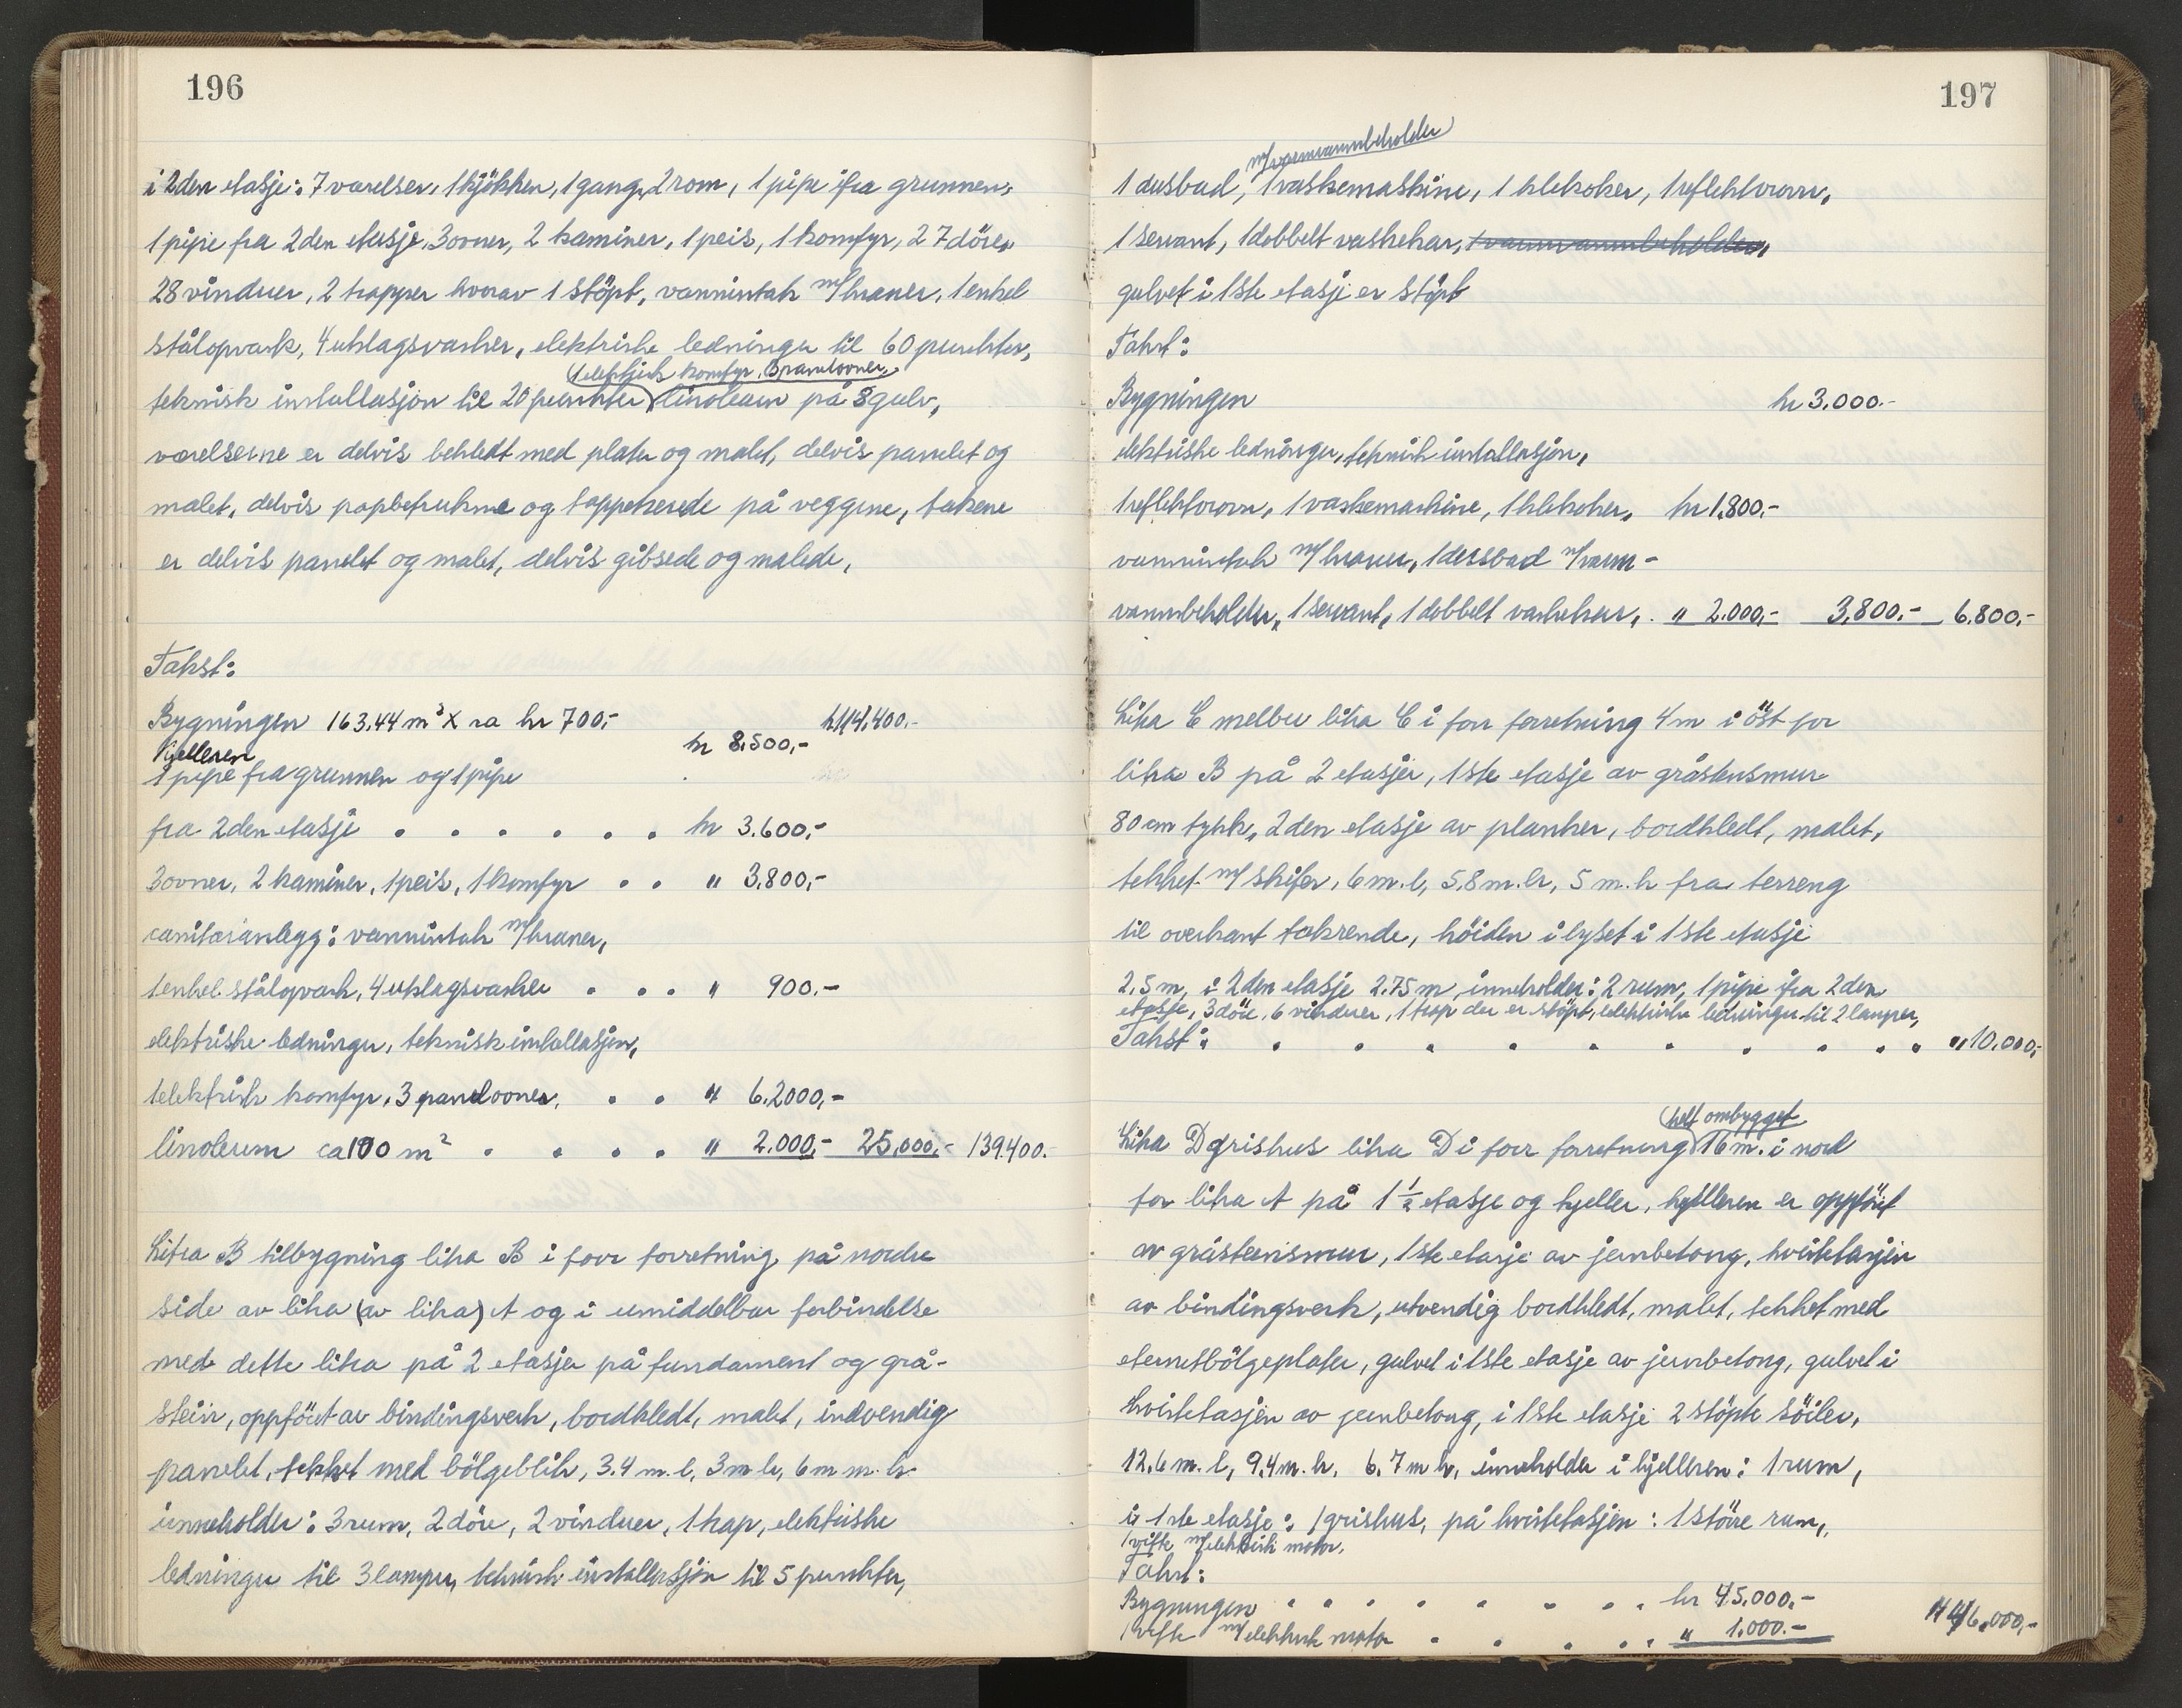 196
i 2den etasje: 7 værelser, 1 kjökken, 1 gang, 2 rom, 1 pipe ifra grunnen,
1 pipe fra 2den etasje, 3 ovner, 2 kaminer, 1 peis, 1 komfyr, 27 döre,
28 vinduer, 2 trapper hvorav 1 stöpt, vanninntak m/kraner, 1 enkel
stålopvask, 4 utslagsvasker, elektriske ledninger til 60 punkter,
1 elektrisk komfyr, 3 panelovner,
teknisk installasjon til 20 punkter linoleum på 8 gulv,
værelserne er delvis bekledt med plater og malet, delvis panelet og
malet, delvis papbetrukne og tappeserede på veggene, takene
er delvis panelet og malet, delvis gibsede og malede,
Takst:
Bygningen 163,44 m² x ca kr 700,- kr 114,400,-
Kjelleren kr 8,500,-
1 pipe fra grunnen og 1 pipe
fra 2den etasje . . . . . . kr 3.600,-
3 ovner, 2 kaminer, 1 peis, 1 komfyr . . " 3,800,-
sanitæranlegg: vanninntak m/kraner,
1 enkel stålopvask, 4 utslagsvasker . . . " 900,-
elektriske ledninger, teknisk installasjon,
1 elektrisk komfyr, 3 panelovner, . . " 6.2000,-
linoleum ca 100 m² . . . . " 2.000,- 25,000,- 139.400.-
Litra B tilbygning litra B i forr forretning på nordre
side av litra (av litra) A og i umiddelbar forbindelse
med dette litra på 2 etasjer på fundament og grå-
stein, oppfört av bindingsverk, bordkledt, malet, indvendig
panelet, tekket med bölgeblik, 3.4 m. l, 3 m br, 6 m m. h.
inneholder: 3 rum, 2 döre, 2 vinduer, 1 trap, elektriske
ledninger til 3 lamper, teknisk installasjon til 5 punkter,
197
m/varmvannbeholder
1 dusbad, 1 vaskemaskine, 1 klekoker, 1 reflektorovn,
1 servant, 1 dobbelt vaskekar, 1 varmvannbeholder,
gulvet i 1ste etasje er stöpt
Takst:
Bygningen kr 3.000.-
elektriske ledninger, teknisk installasjon,
1 reflektorovn, 1 vaskemaskine, 1 klekoker, kr 1,800,-
vanninntak m/kraner, 1 dusbad m/varm-
vannbeholder, 1 servant, 1 dobbelt vaskekar, . " 2.000,- 3,800.- 6.800.-
Litra C melbu litra C i forr forretning 4 m i öst for
litra B på 2 etasjer, 1ste etasje av gråstensmur
80 cm tykk, 2den etasje av planker, bordkledt, malet,
tekket m/ skifer, 6 m. l, 5,8 m. br, 5 m. h fra terreng
til overkant takrende, höiden i lyset i 1ste etasje
2,5 m, i 2den etasje 2.75 m inneholder: 2 rum, 1 pipe ifra 2den
etasje, 3 döre, 6 vinduer, 1 trap der er stöpt, elektriske ledninger til 2 lamper,
Takst: . . . . . . . . . . " 10.000,-
helt ombygget
Litra D grishus litra D i forr forretning 16 m. i nord
for litra A på 1 ½ etasje og kjeller, kjelleren er oppfört
av gråsteinsmur, 1ste etasje av jernbetong, kvistetasjen
av bindingsverk, utvendig bordkledt, malet, tekket med
eternitbölgeplater, gulvet i 1ste etasje av jernbetong, gulvet i
kvistetasjen av jernbetong, i 1ste etasje 2 stöpte söiler,
12,6 m. l, 9,4 m. br, 6.7 m h, inneholder i kjelleren: 1 rum,
i 1ste etasje: 1 grishus, på kvistetasjen: 1 större rum,
1 vifte m/elektrisk motor,
Takst:
Bygningen . . . . . . . . kr 45,000.-
1 vifte m/elektrisk motor . . . . . " 1.000.- 46,000,-